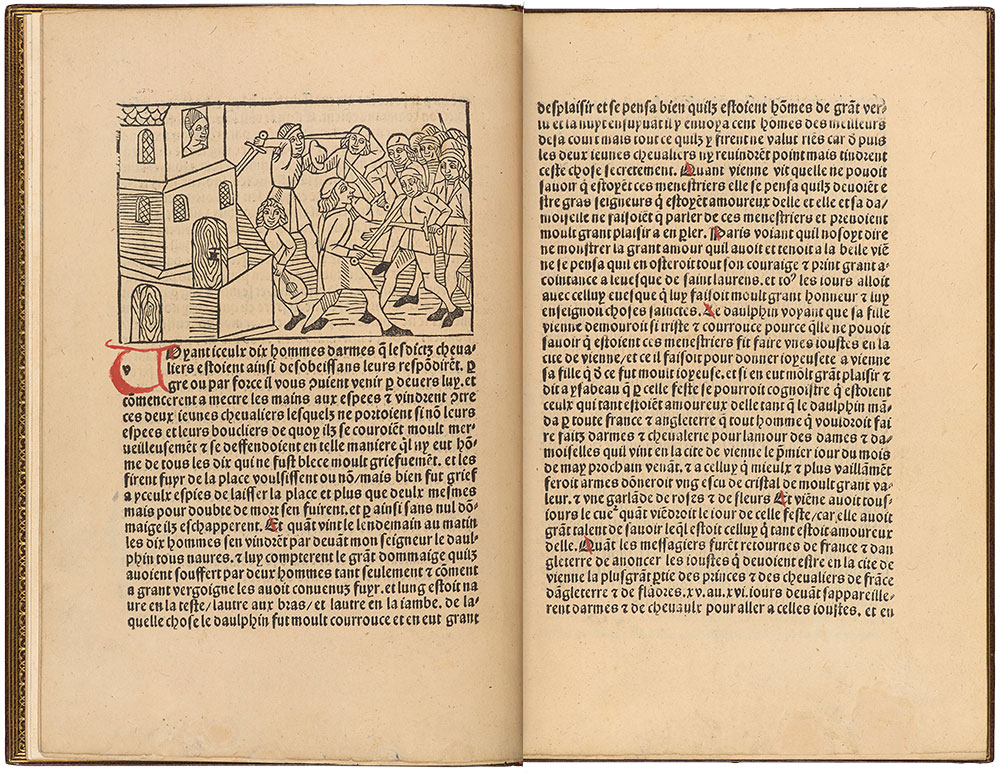 Voyant iceulx dix hommes darmes q̃ lesdictz cheua-
liers estoient ainsi desobeissans leurs respõdirẽt. ꝑ
gre ou par force il vous ↄuient venir ꝑ deuers luy. et
cõmencerent a mectre les mains aux espees ⁊ vindrent ↄtre
ces deux ieunes cheualiers lesquelz ne portoient si nõ leurs
espees et leurs boucliers de quoy ilz se couroiẽt moult mer-
ueilleusemẽt ⁊ se deffendoient en telle maniere q̃l ny eut hõ-
me de tous les dix qui ne fust blece moult griefuemẽt. et les
firent fuyr de la place voulsissent ou nõ/mais bien fut grief
a yceulx espies de laisser la place et plus que deulx mesmes
mais pour doubte de mort sen fuirent. et ꝑ ainsi sans nul dõ-
maige ilz eschapperent. Et quãt vint le lendemain au matin
les dix hommes sen vindrẽt par deuãt mon seigneur le daul-
phin tous naures. ⁊ luy compterent le grãt dommaige quilz
auoient souffert par deux hommes tant seulement ⁊ cõment
a grant vergoigne les auoit conuenuz fuyr. et lung estoit na
ure en la teste/lautre aux bras/et lautre en la iambe. de la-
quelle chose le daulphin fut moult courrouce et en eut grant
desplaisir et se pensa bien quilz estoient hõmes de grãt ver-
tu et la nuyt ensuyuãt il y enuoya cent hõmes des meilleurs
de sa court mais tout ce quilz y firent ne valut riẽs car d puis
les deux ieunes cheualiers ny reuindrẽt point mais tindrent
ceste chose secretement. Quant vienne vit quelle ne pouoit
sauoir q̃ estoyẽt ces menestriers elle se pensa quilz deuoiẽt e
stre gras seigneurs q̃ estoyẽt amoureux delle et elle et sa da/
moiselle ne faisoiẽt q̃ parler de ces menestriers et prenoient
moult grant plaisir a en ꝑler. Paris voiant quil nosoyt dire
ne mõstrer la grant amour quil auoit et tenoit a la belle viẽ
ne se pensa quil en osteroit tout son couraige ⁊ print grant a-
cointance a leuesque de saint laurens. et toꝰ les iours alloit
auec celluy euesque q̃ luy faisoit moult grant honneur ⁊ luy
enseignoit choses sainctes. Le daulphin voyant que sa fille
vienne demouroit si triste ⁊ courrouce pource q̃lle ne pouoit
sauoir q̃ estoient ces menestriers fit faire vnes ioustes en la
cite de vienne/et ce il faisoit pour donner ioyeusete a vienne
sa fille q̃ d ce fut moult ioyeuse. et si en eut mõlt grãt plaisir ⁊
dit a ysabeau q̃ ꝑ celle feste se pourroit cognoistre q̃ estoient
ceulx qui tant estoiẽt amoureux delle tant q̃ le daulphin mã-
da ꝑ toute france ⁊ angleterre q̃ tout homme q̃ vouldroit fai
re faitz darmes ⁊ cheualerie pour lamour des dames ⁊ da-
moiselles quil vint en la cite de vienne le p̃mier iour du mois
de may prochain venãt. ⁊ a celluy q̃ mieulx ⁊ plus vaillamẽt
feroit armes dõneroit vng escu de cristal de moult grant va-
leur. ⁊ vne garlãde de roses ⁊ de fleurs Et viẽne auoit tous-
iours le cueꝰ quant viẽdroit le iour de celle feste/car elle auoit
grãt talent de sauoir leq̃l estoit celluy q̃ tant estoit amoureux
delle. Quãt les messagiers furẽt retournes de france ⁊ dan
gleterre de anoncer les ioustes q̃ deuoiẽt estre en la cite de
vienne la plusgrãt ꝑtie des princes ⁊ des cheualiers de frãce
dãgleterre ⁊ de flãdres .xv. au .xvi. iours deuãt sappareille-
rent darmes ⁊ de cheuaulx pour aller a celles ioustes. et en